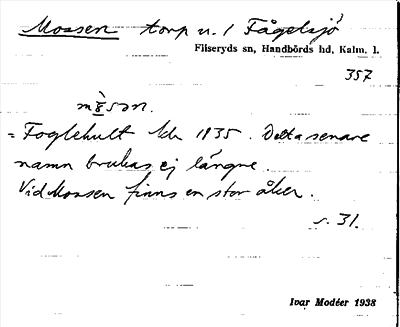 Mossen torp u. 1 Fågelsjö
Fliseryds sn, Handbörds hd, Kalm. l.
357
= Foglehult Kdr 1835. Detta senare
namn brukas ej längre.
Vid Mossen finns en stor åker.
s. 31.
Ivar Modéer 1938